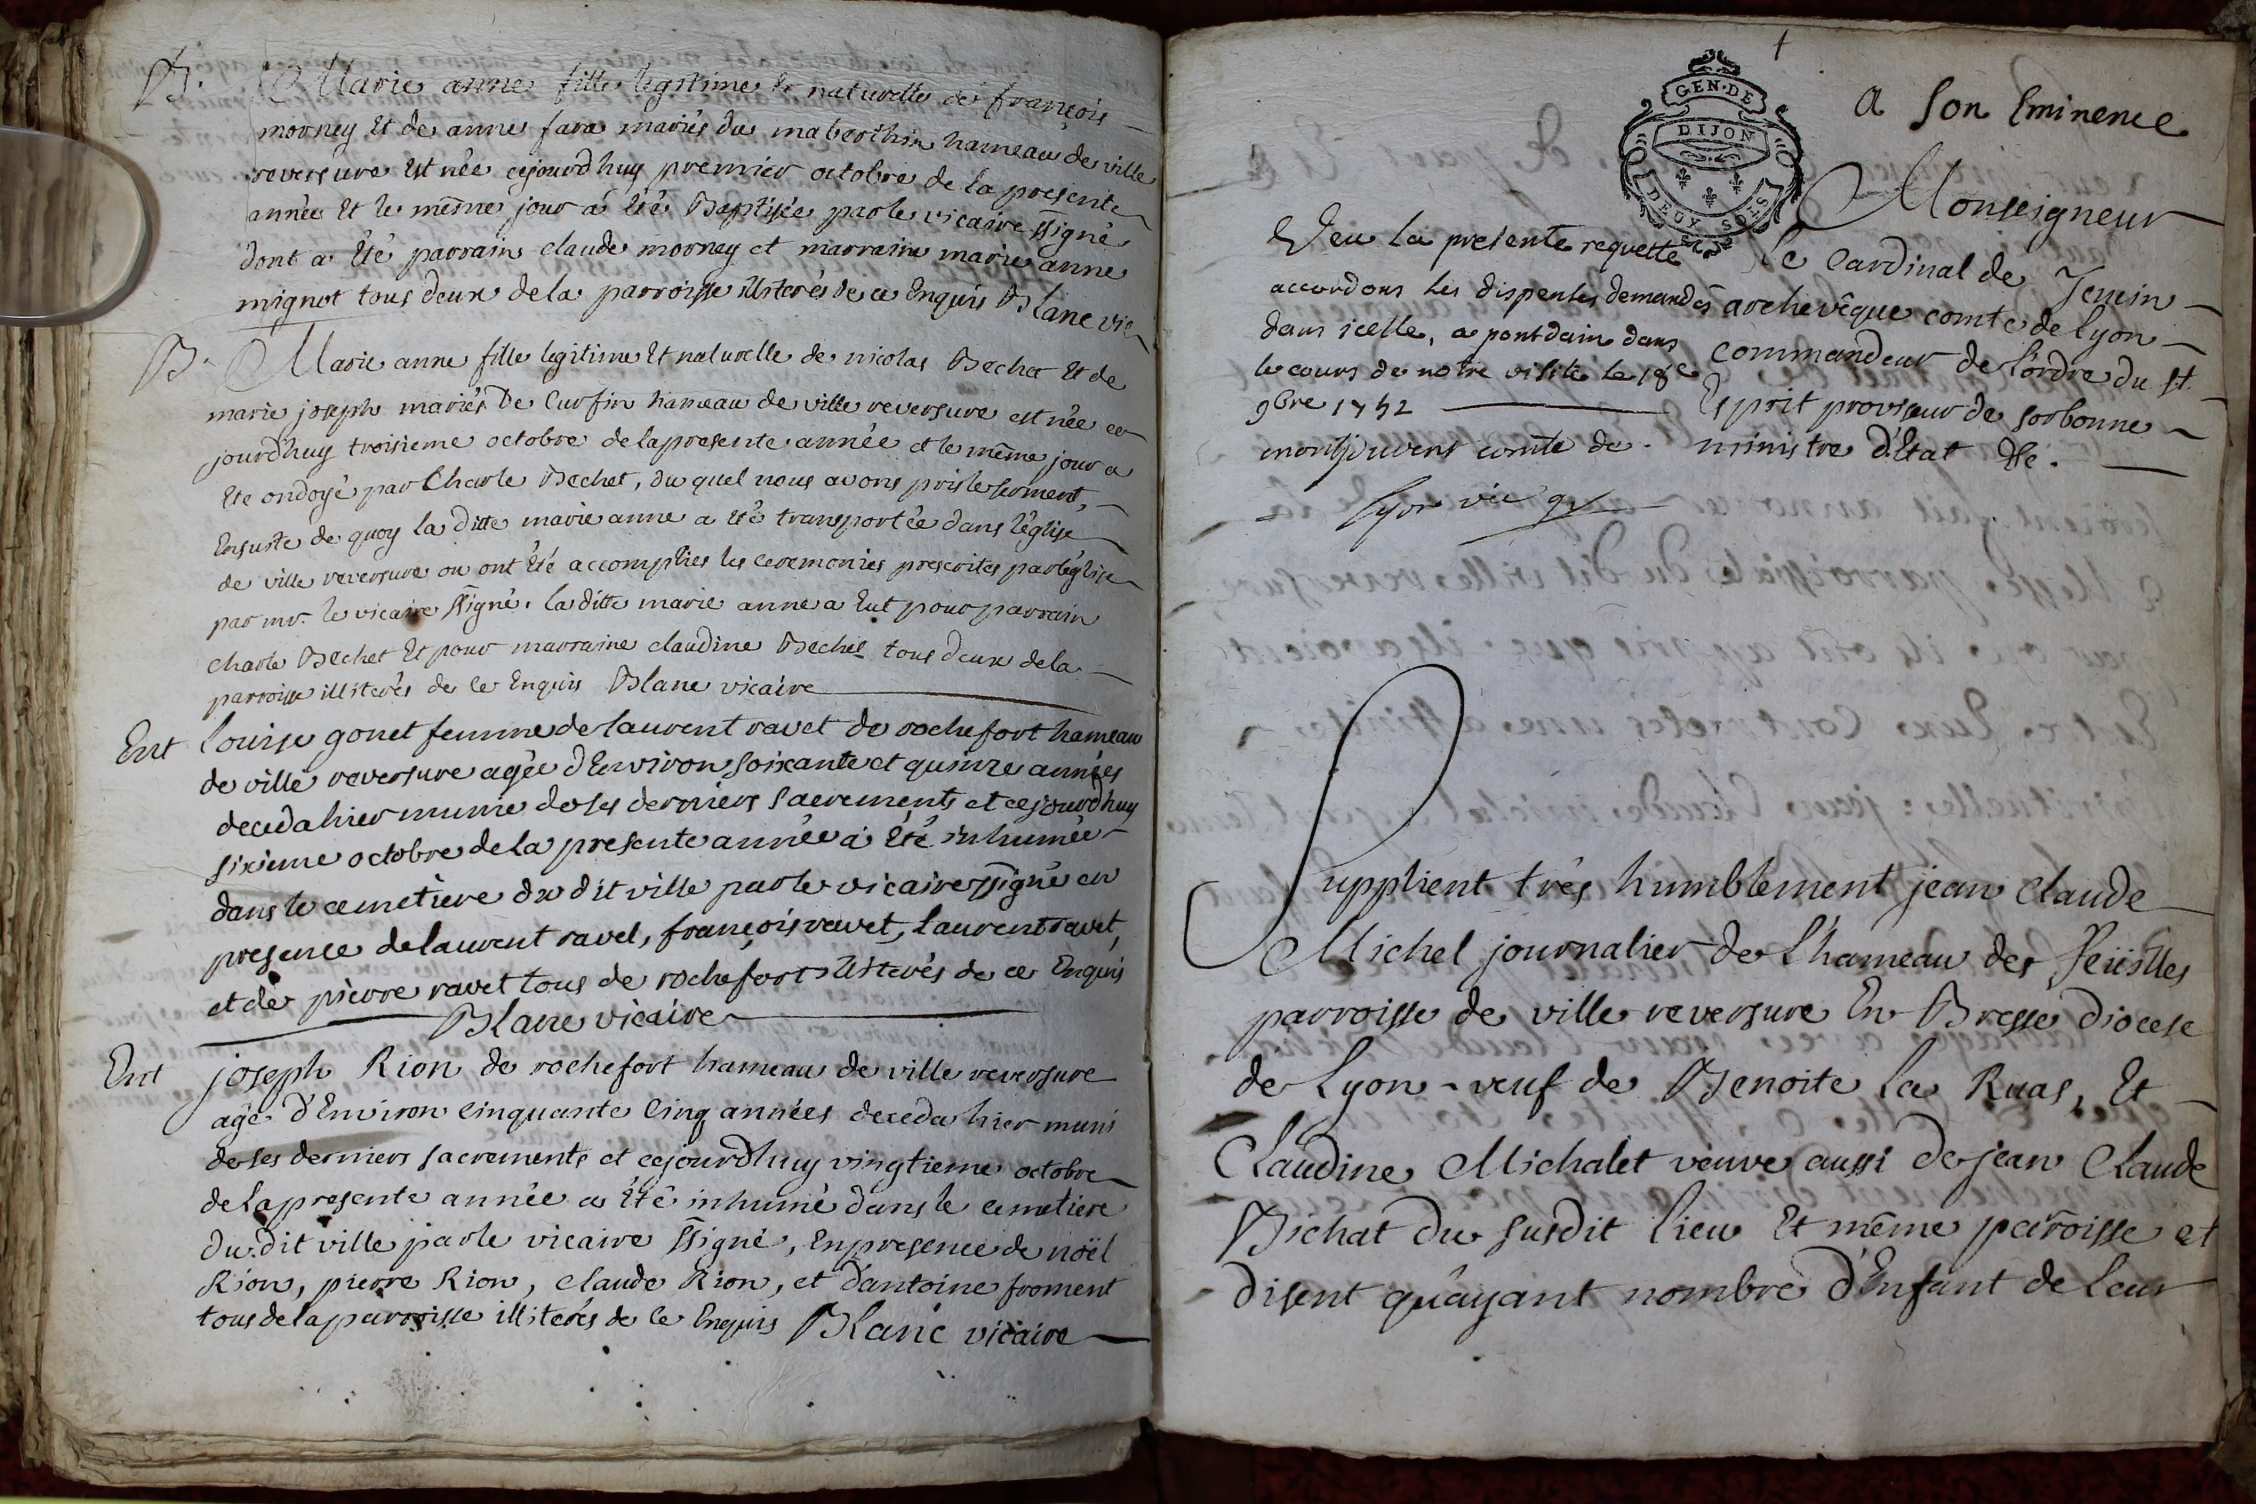 B. Marie anne fille legitime et naturelle de françois
morney Et de anne fara mariés du maberthin hameau de ville
reversure Est née cejourdhuy premier octobre de la presente
année Et le même jour a été Baptisée par le vicaire ssigné
dont a été parrain claude morney et marraine marie anne
mignot tous deux de la parroisse illiterés de ce Enquis Blanc vic
B. Marie anne fille legitime Et naturelle de nicolas Bechet Et de
marie joseph mariés De Curfin hameau de ville reversure est née ce
jourd'huy troisieme octobre de la presente année et le même jour a
Eté ondoyé par Charle Bechet, du quel nous avons pris le serment,
Ensuite de quoy la ditte marie anne a été transportée dans l'église
de ville reversure ou ont été accomplies les ceremonies prescrites par l'église
par mr. le vicaire ssigné. la ditte marie anne a Eut pour parrain
charle Bechet Et pour marraine claudine Bechet tous deux de la
parroisse illiterés de ce Enquis Blanc vicaire
Ent Louise gonet femme de laurent ravet de rochefort hameau
de ville reversure agée d'Environ soixante et quinze années
deceda hier munie de ses derniers sacrements et cejourdhuy
sixieme octobre de la presente année a été inhumée
dans le cemetiere du dit ville par le vicaire ssigné en
presence de laurent ravet, françois ravet, laurent ravet,
et de pierre ravet tous de rochefort illiterés de ce Enquis
Blanc vicaire
Ent joseph Rion de rochefort hameau de ville reversure
agé d'Environ cinquante cinq années deceda hier muni
de ses derniers sacrements et cejourdhuy vingtieme octobre
de la presente année a été inhumé dans le cemetiere
du dit ville par le vicaire ssigné, En presence de noël
Rion, pierre Rion, claude Rion, et d'antoine froment
tous de la parroisse illiterés de ce Enquis Blanc vicaire
GEN. DE
DIJON
DEUX SOLS
a son Eminence
Monseigneur
Le Cardinal de Tencin
archevêque comte de Lyon
commandeur de l'ordre du st.
Esprit proviseur de sorbonne
ministre d'Etat &c.
Veu la presente requette
accordons les dispenses demandés
dans icelle, a pontdain dans
le cours de notre visite le 18e
9bre 1752
montjouvent comte de
Lyon vic gl
Supplient très humblement jean claude
Michel journalier de L'hameau des feüilles
parroisse de ville reversure En Bresse Diocese
de Lyon veuf de Benoite La Ruas, Et
Claudine Michalet veuve aussi de jean Claude
Bichat du susdit lieu Et même paroisse et
disent qu'ayant nombre d'Enfant de leur